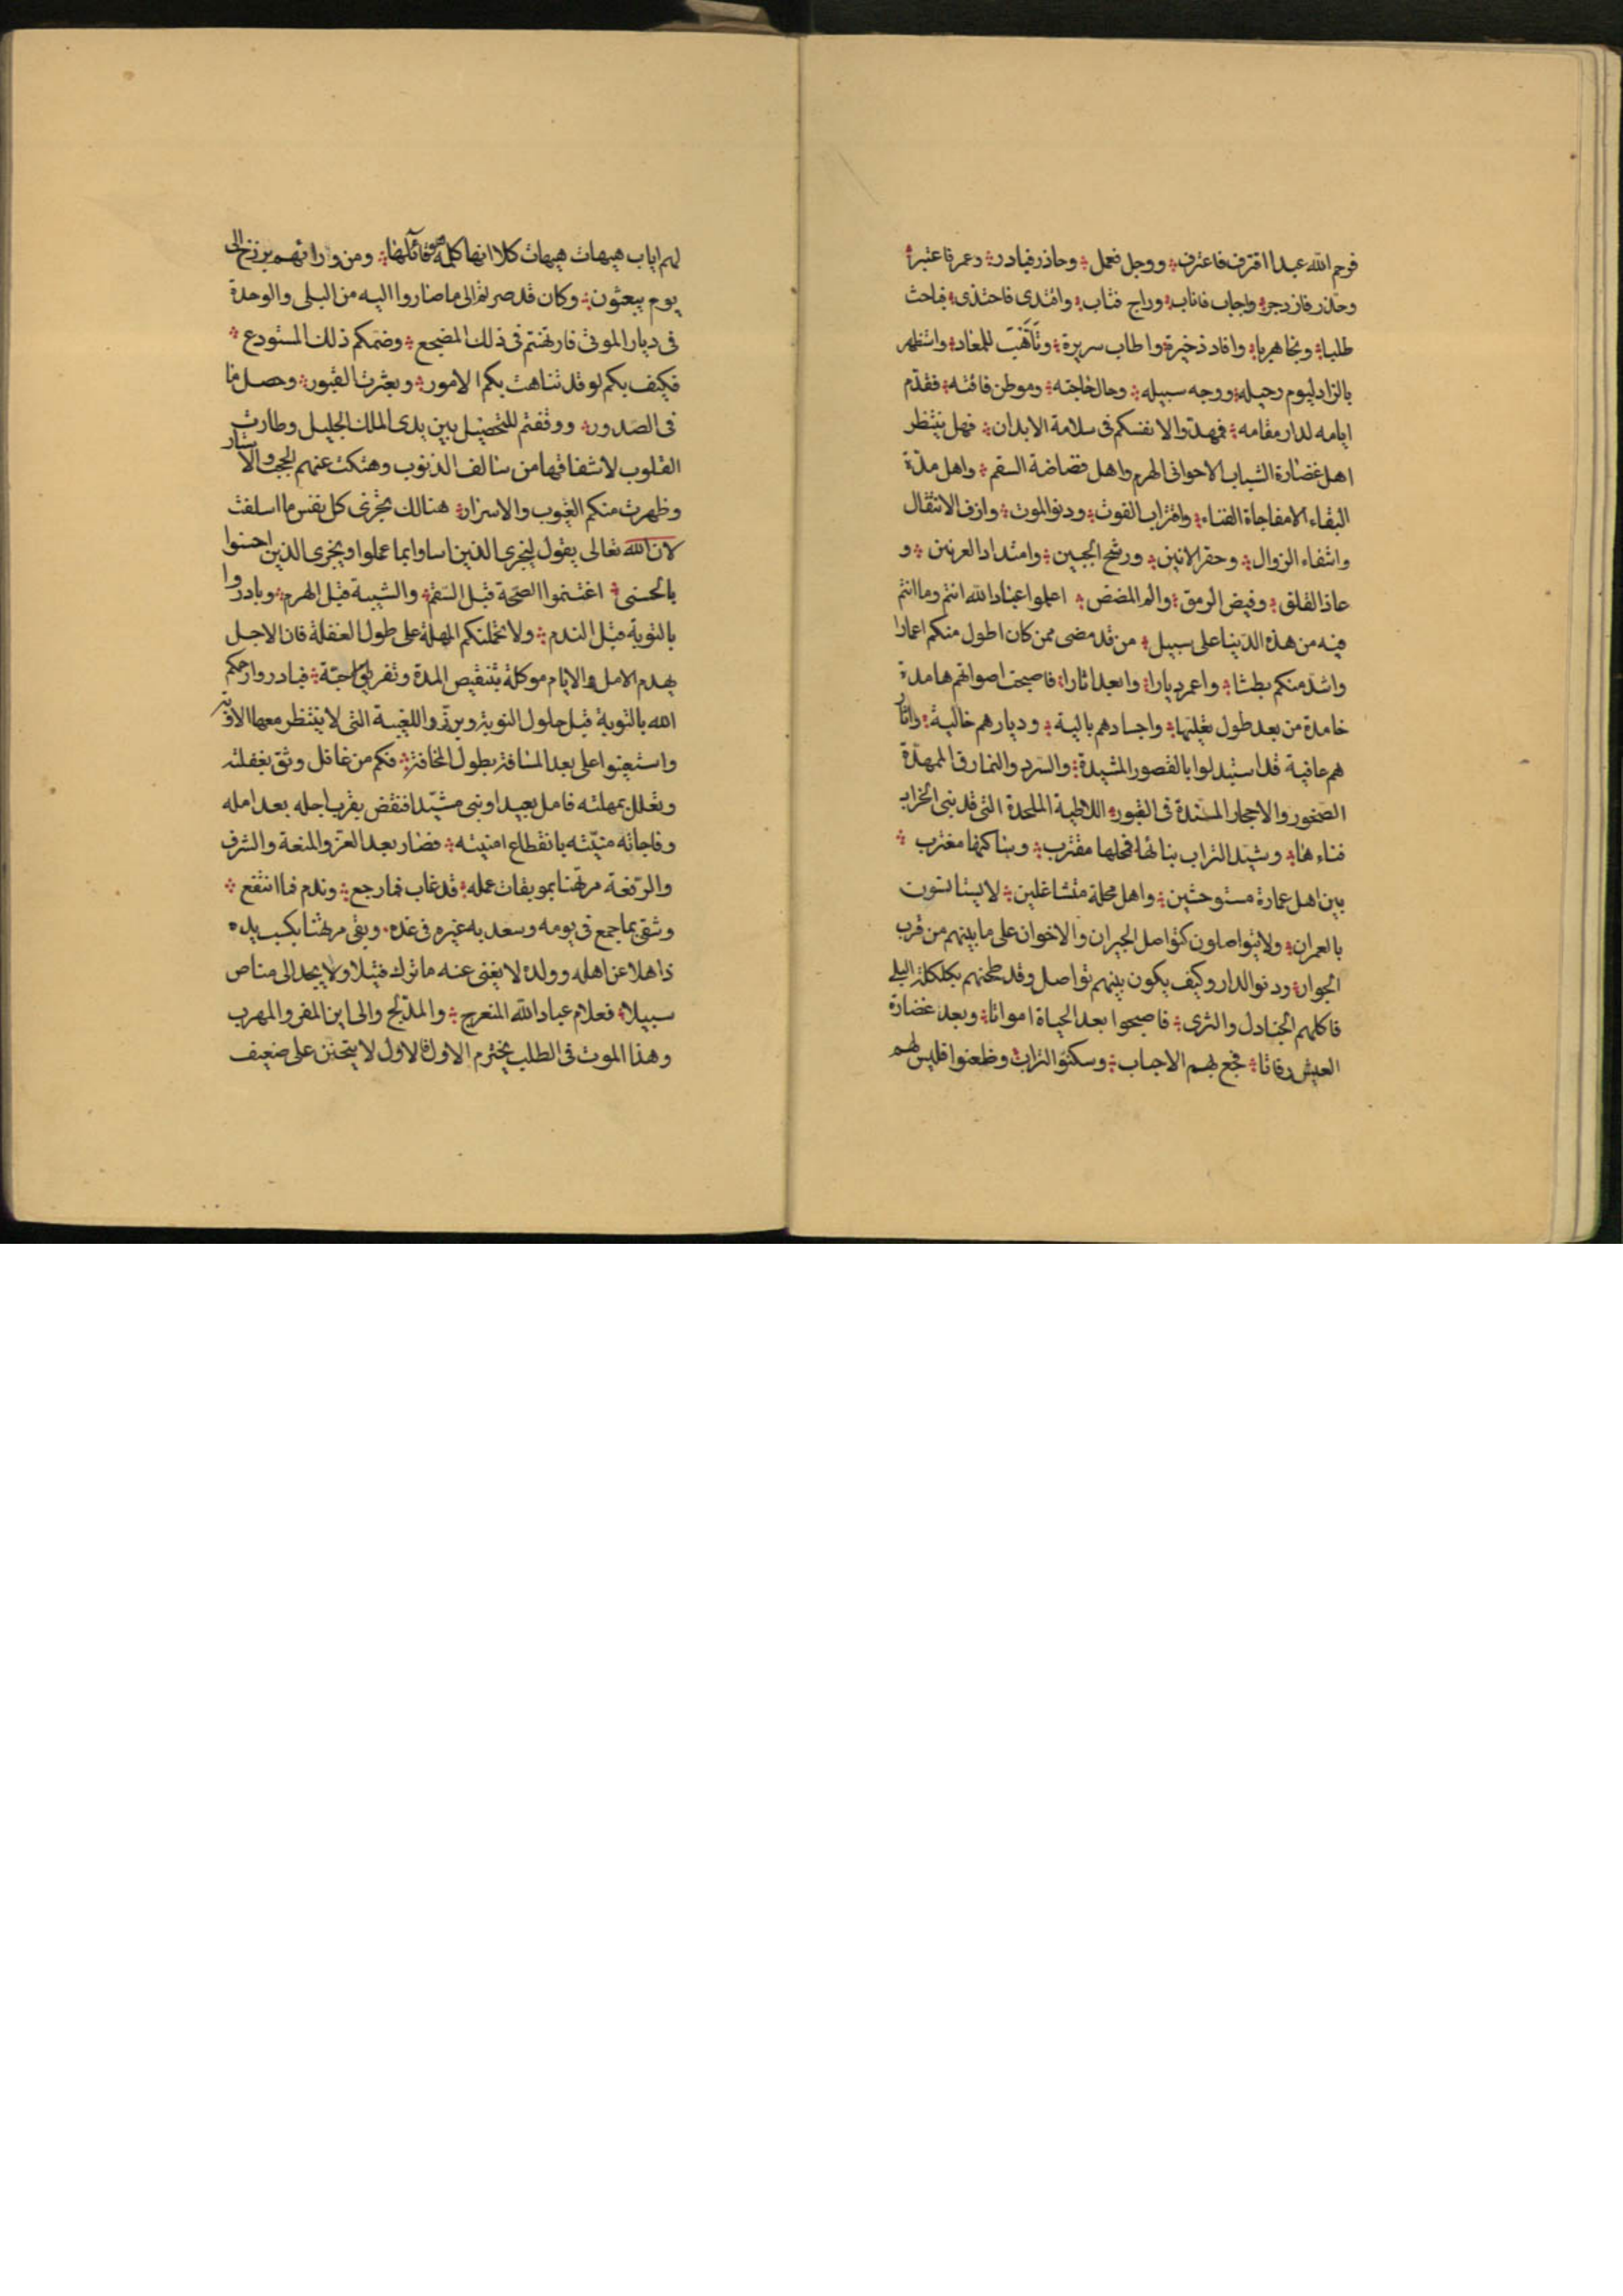 فرحم الله عبدا اقترف فاعترف ووجل فعمل وحاذر فبادر وعمر فاعتبر
وحذر فازدجر واجاب فاناب وراجع فتاب واقتدى فاحتذى فباحث
طلبا ونجا هربا وافاد ذخيرة واطاب سريرة وتأهب للمعاد واستظهر
بالزاد ليوم رحيله ووجه سبيله وحال حاجته وموطن فاقته فقدم
امامه لدار مقامه فمهدوا لانفسكم فى سلامة الابدان فهل ينتظر
اهل غضارة الشباب الا حوانى الهرم واهل قضاضة السقم واهل مدة
البقاء الا مفاجاة الفناء واقتراب الفوت ودنو الموت وازف الانتقال
واشفاء الزوال وحفز الانين ورشح الجبين وامتداد العرنين و
علز القلق وفيض الرمق والم المضض اعلموا عباد الله انتم وما انتم
فيه من هذه الدنيا على سبيل من قد مضى ممن كان اطول منكم اعمارا
واشد منكم بطشا واعمر ديارا وابعد اثارا فاصبحت اصواتهم هامدة
خامدة من بعد طول تقلبها واجسادهم بالية وديارهم خالية واثار
هم عافية قد استبدلوا بالقصور المشيدة والسرر والنمارق الممهدة
الصخور والاحجار المسندة فى القبور اللاطية الملحدة التى قد بنى الخراب
فناءها وشيد التراب بنائها فمحلها مقترب وساكنها مغترب
بين اهل عمارة مستوحشين واهل محلة متشاغلين لا يستانسون
بالعمران ولا يتواصلون كتواصل الجيران والاخوان على ما بينهم من قرب
الجوار ودنو الدار وكيف يكون بينهم تواصل وقد طحنهم بكلكلة البلى
فاكلهم الجنادل والثرى فاصبحوا بعد الحياة امواتا وبعد غضارة
العيش رفاتا فجع بهم الاحباب وسكنوا التراب وظعنوا فليس لهم
لهم اياب هيهات هيهات كلا انها كلمة هو قائلها ومن ورائهم برزخ الى
يوم يبعثون وكان قد صرتم الى ما صاروا اليه من البلى والوحدة
فى ديار الموتى فارتهنتم فى ذلك المضجع وضمكم ذلك المستودع
فكيف بكم لو قد تناهت بكم الامور وبعثرت القبور وحصل ما
فى الصدور ووقفتم للتحصيل بين يدى الملك الجليل وطارت
القلوب لاشفاقها من سالف الذنوب وهتكت عنهم الحجب والاستار
وظهرت منكم الغيوب والاسرار هنالك تجزى كل نفس ما اسلفت
لان الله تعالى يقول ليجزى الذين اساوا بما عملوا ويجزى الذين احسنوا
بالحسنى اغتنموا الصحة قبل السقم والشيبة قبل الهرم وبادروا
بالتوبة قبل الندم ولا تحملنكم المهلة على طول الغفلة فان الاجل
يهدم الامل والايام موكلة بتنقيص المدة وتفريق الاحبة فبادروا رحمكم
الله بالتوبة قبل حلول النوبة وبرزوا للغيبة التى لا ينتظر معها الاوبة
واستعينوا على بعد المسافة بطول المخافة فكم من غافل وثق بغفلته
وتعلل بمهلته فامل بعيدا وبنى مشيدا فنقض بقرب اجله بعد امله
وفاجاته منيته بانقطاع امنيته فصار بعد العز والمنعة والشرف
والرفعة مرتهنا بموبقات عمله قد غاب فما رجع وندم فما انتفع
وشقى بما جمع فى يومه وسعد به غيره فى غده وبقى مرتهنا بكسب يده
ذاهلا عن اهله وولده لا يغنى عنه ما ترك فتيلا ولا يجد الى مناص
سبيلا فعلام عباد الله المتعرج والمدلج والى اين المفر والمهرب
وهذا الموت فى الطلب يخترم الاول فالاول لا يتحنن على ضعيف